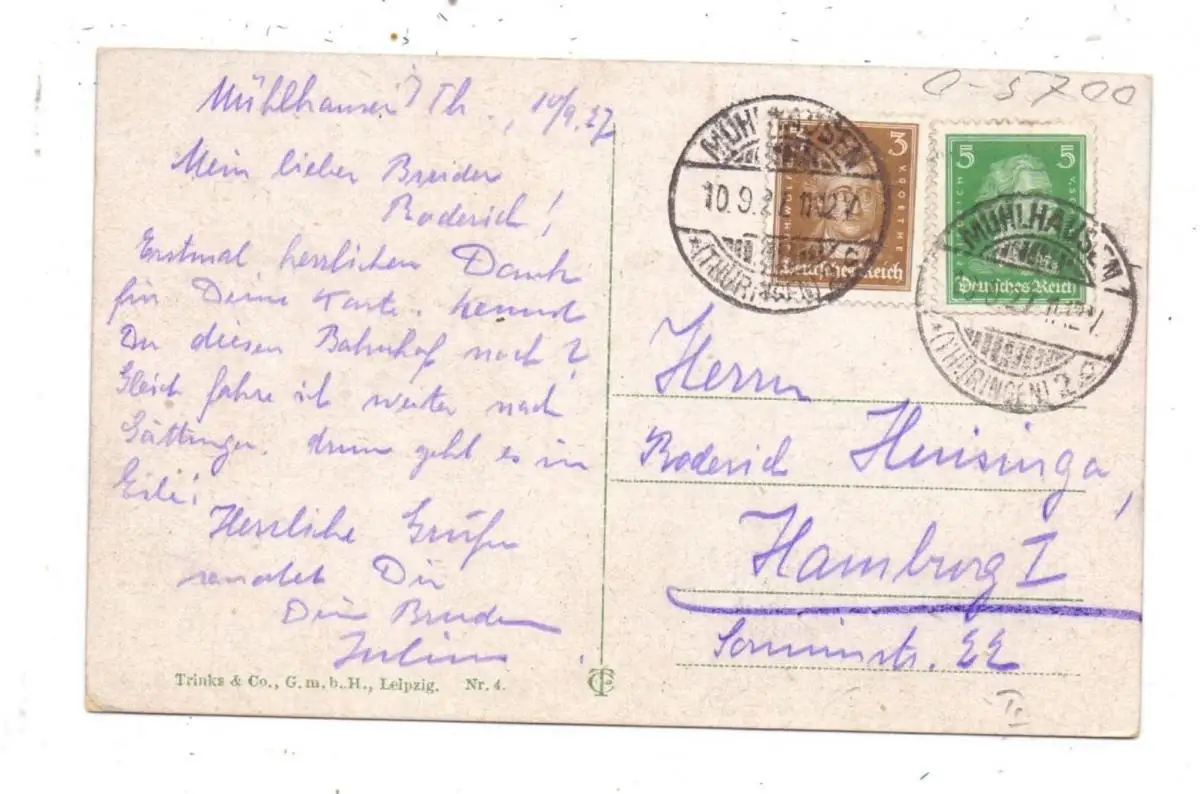 Mühlhausen Th., 10/9.27
Mein lieber Bruder
Roderich!
Erstmal herzlichen Dank
für Deine Karte. Kennst
Du diesen Bahnhof noch?
Gleich fahre ich weiter nach
Göttingen, drum geht es in
Eile!
Herzliche Grüße
sendet Dir
Dein Bruder
Julius.
Trinks & Co., G. m. b. H., Leipzig. Nr. 4.
0-5700
MÜHLHAUSEN
10.9.27. 11-12 V.
*(THÜRINGEN)
3
V. GOETHE
Deutsches Reich
5 5
Deutsches Reich
MÜHLHAUSEN 1
*(THÜRINGEN) 2
Herrn
Roderich Huisinga,
Hamburg I
22